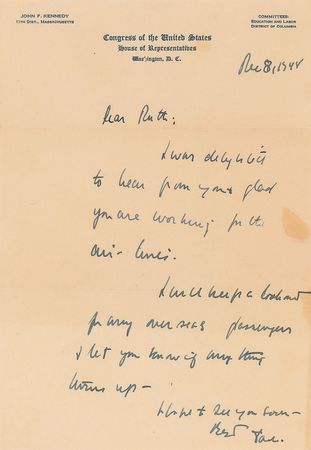 JOHN F. KENNEDY
11TH DIST., MASSACHUSETTS
COMMITTEES:
EDUCATION AND LABOR
DISTRICT OF COLUMBIA
Congress of the United States
House of Representatives
Washington, D. C.
Dec 8, 1948
Dear Ruth:
I was delighted
to hear from you & glad
you are working for the
air-lines.
I will keep a lookout
for any overseas passengers
& let you know if any thing
turns up -
Hope to see you soon -
Best